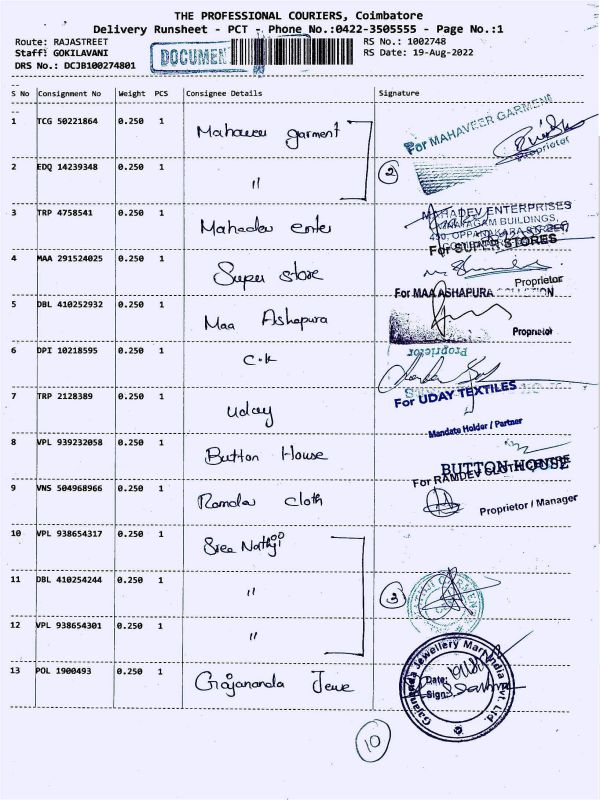 THE PROFESSIONAL COURIERS, Coimbatore
Delivery Runsheet - PCT - Phone No.:0422-3505555 - Page No.:1
Route: RAJASTREET
RS No.: 1002748
Staff: GOKILAVANI
DOCUMEN
RS Date: 19-Aug-2022
DRS No.: DCJB100274801
S No Consignment No Weight PCS Consignee Details Signature
1 TCG 50221864 0.250 1 Mahaveer garment
For MAHAVEER GARMENT
Proprietor
2 EDQ 14239348 0.250 1 " 2
3 TRP 4758541 0.250 1 Mahadev enter
MAHADEV ENTERPRISES
BUILDINGS,
For SUPER STORES
4 MAA 291524025 0.250 1 Super store
Proprietor
For MAA ASHAPURA
5 DBL 410252932 0.250 1 Maa Ashapura
Proprietor
6 DPI 10218595 0.250 1 C.K
Proprietor
7 TRP 2128389 0.250 1 Uday
For UDAY TEXTILES
Mandate Holder / Partner
8 VPL 939232058 0.250 1 Button House
BUTTON HOUSE
For RAMDEV CLOTH CENTRE
9 VNS 504968966 0.250 1 Ramdev cloth
Proprietor / Manager
10 VPL 938654317 0.250 1 Sree Nathji
11 DBL 410254244 0.250 1 " 3
12 VPL 938654301 0.250 1 "
13 POL 1900493 0.250 1 Gajananda Jewe
Gajananda Jewellery Mart India Pvt. Ltd.
Date:
Sign:
10